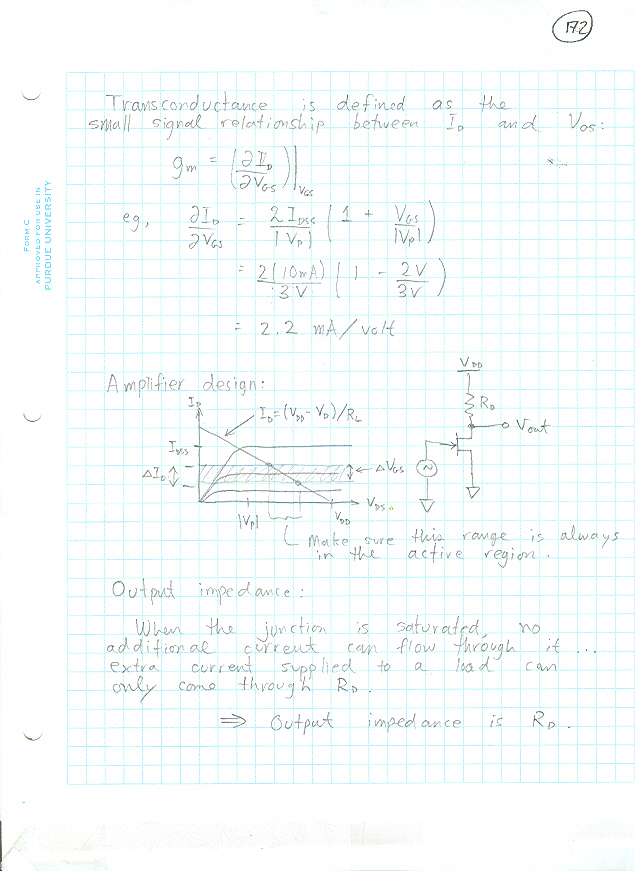 172
FORM C
APPROVED FOR USE IN
PURDUE UNIVERSITY
Transconductance is defined as the
small signal relationship between I_D and V_GS:
g_m = (∂I_D / ∂V_GS)|_V_GS
eg, ∂I_D / ∂V_GS = 2 I_DSS / |V_P| (1 + V_GS / |V_P|)
= 2(10mA) / 3V (1 - 2V / 3V)
= 2.2 mA/volt
Amplifier design:
V_DD
R_D
V_out
I_D
I_D = (V_DD - V_D)/R_L
I_DSS
ΔI_D
ΔV_GS
|V_P|
V_DD
V_DS
Make sure this range is always
in the active region.
Output impedance:
When the junction is saturated, no
additional current can flow through it ...
extra current supplied to a load can
only come through R_D.
⇒ Output impedance is R_D.